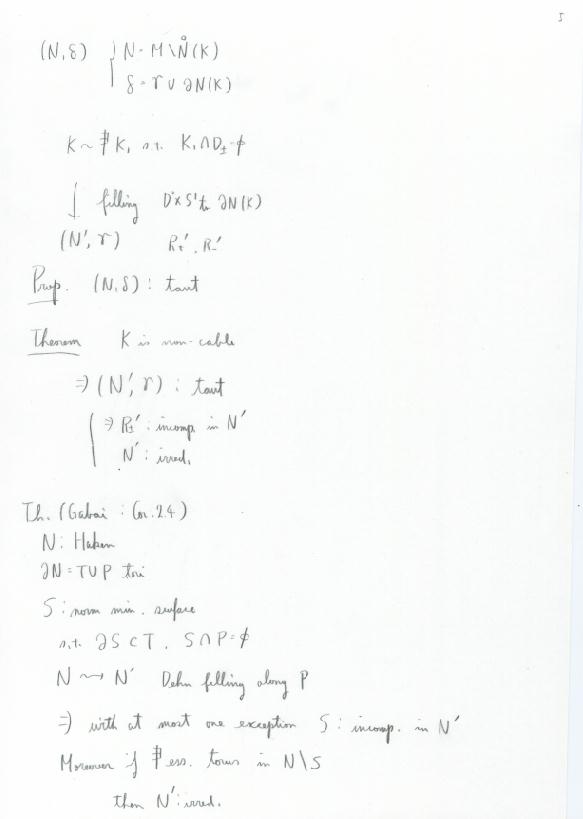 5
(N, δ) { N = M \ N̊(K)
δ = γ ∪ ∂N(K)
K ~ ∄ K₁ s.t. K₁ ∩ D± = φ
↓ filling D²×S¹ to ∂N(K)
(N', γ) R₊', R₋'
Prop. (N, δ) : taut
Theorem K is non-cable
⇒ (N', γ) : taut
⇒ R±' : incomp. in N'
N' : irred.
Th. (Gabai : Cor. 2.4)
N : Haken
∂N = T ∪ P tori
S : norm min. surface
s.t. ∂S ⊂ T, S ∩ P = φ
N ⇝ N' Dehn filling along P
⇒ with at most one exception S : incomp. in N'
Moreover if ∄ ess. torus in N \ S
then N' : irred.